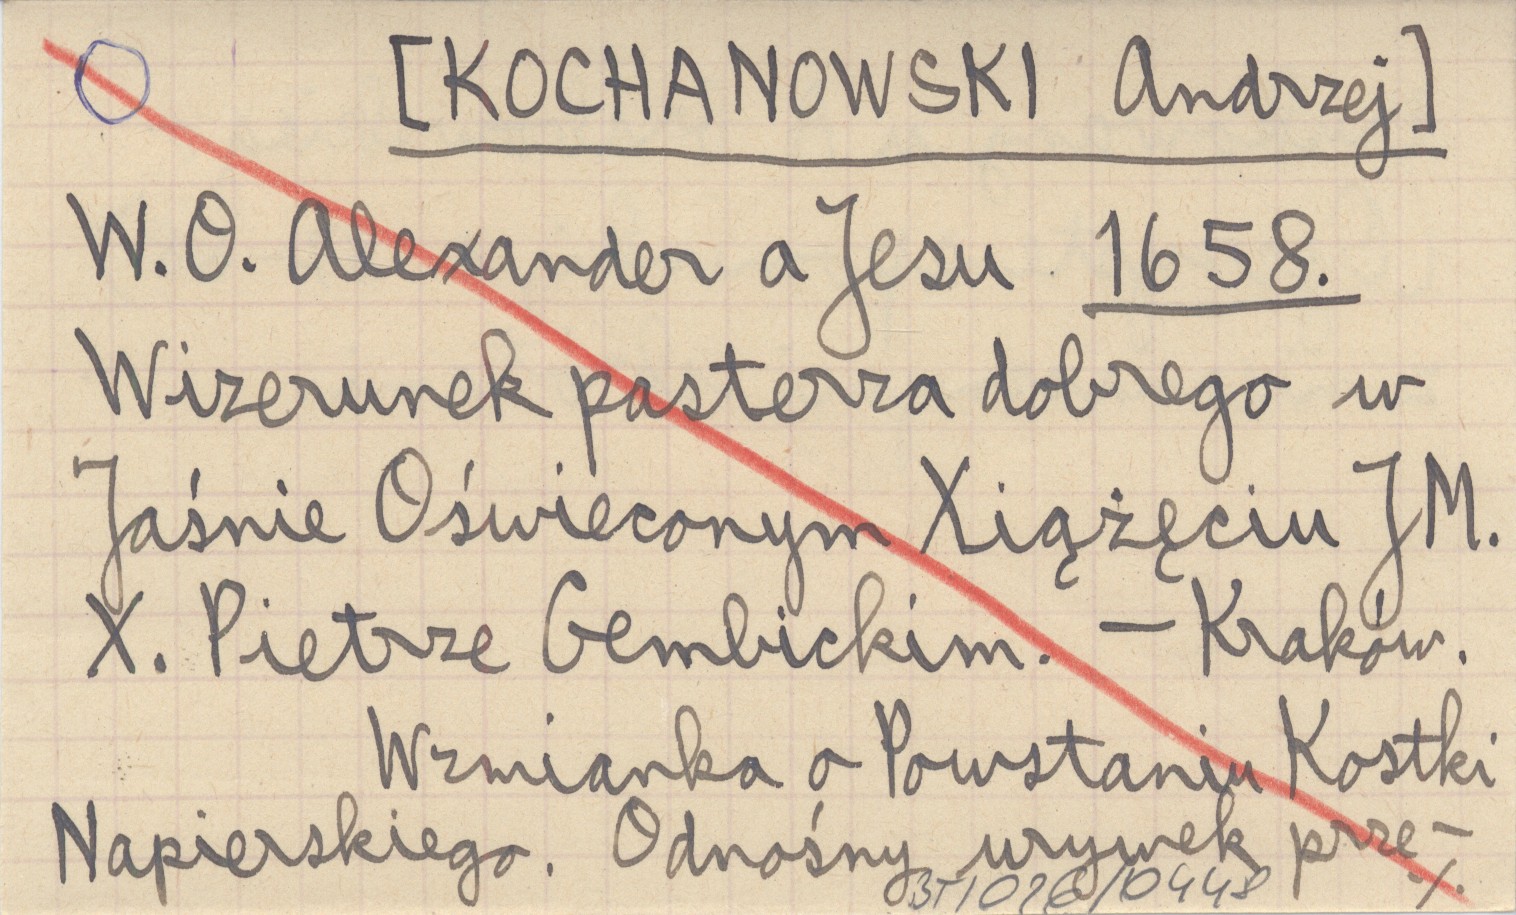 [KOCHANOWSKI Andrzej]
W. O. Alexander a Jesu 1658.
Wizerunek pasterza dobrego w
Jaśnie Oświeconym Xiążęciu JM.
X. Pietrze Gembickim. — Kraków.
Wzmianka o Powstaniu Kostki
Napierskiego. Odnośny urywek prze-
./.